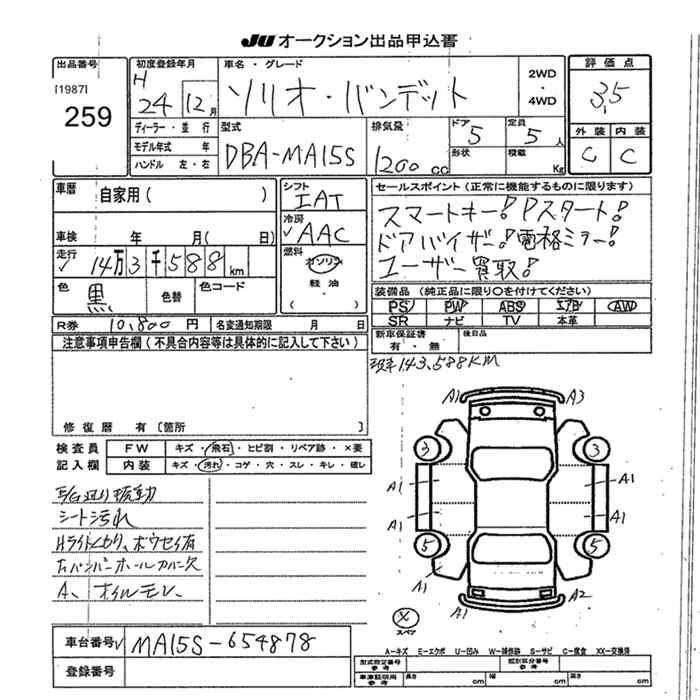 JU オークション出品申込書
出品番号
[1987]
259
初度登録年月
H
24 12月
ディーラー・並 行
モデル年式 年
ハンドル 左・右
車名・グレード
ソリオ・バンデット
2WD
・
4WD
型式
DBA-MA15S
排気量
1200 cc
ドア
5
定員
5人
形状
積載
Kg
評価点
3.5
外装 内装
C C
車歴
自家用( )
車検 年 月( 日)
走行
✓ 14万3千588km
色
黒
色替
色コード
シフト
IAT
冷房
✓AAC
燃料
ガソリン
軽油
( )
セールスポイント(正常に機能するものに限ります)
スマートキー!Pスタート!
ドアバイザー!電格ミラー!
ユーザー買取!
装備品(純正品に限り○を付けてください)
PS PW ABS エアB AW
SR ナビ TV 本革
新車保証書
有・無
後日品
R券 10,800円 名変通知期限 月 日
注意事項申告欄(不具合内容等は具体的に記入して下さい)
現車143,588KM
修復歴 有[箇所 ]
検査員
記入欄
FW キズ・飛石・ヒビ割・リペア跡・×要
内装 キズ・汚れ・コゲ・穴・スレ・キレ・破レ
シート汚れ
A1 A3
3 3
A1 A1
A1 A1
5 5
A1
A1 A2
×
スペア
車台番号✓ MA15S-654878
登録番号
A−キズ E−エクボ U−凹み W−補修跡 S−サビ C−腐食 XX−交換済
型式指定番号
参考
類別区分番号
参考
車庫証明用
参考
長さ cm 幅 cm 高さ cm